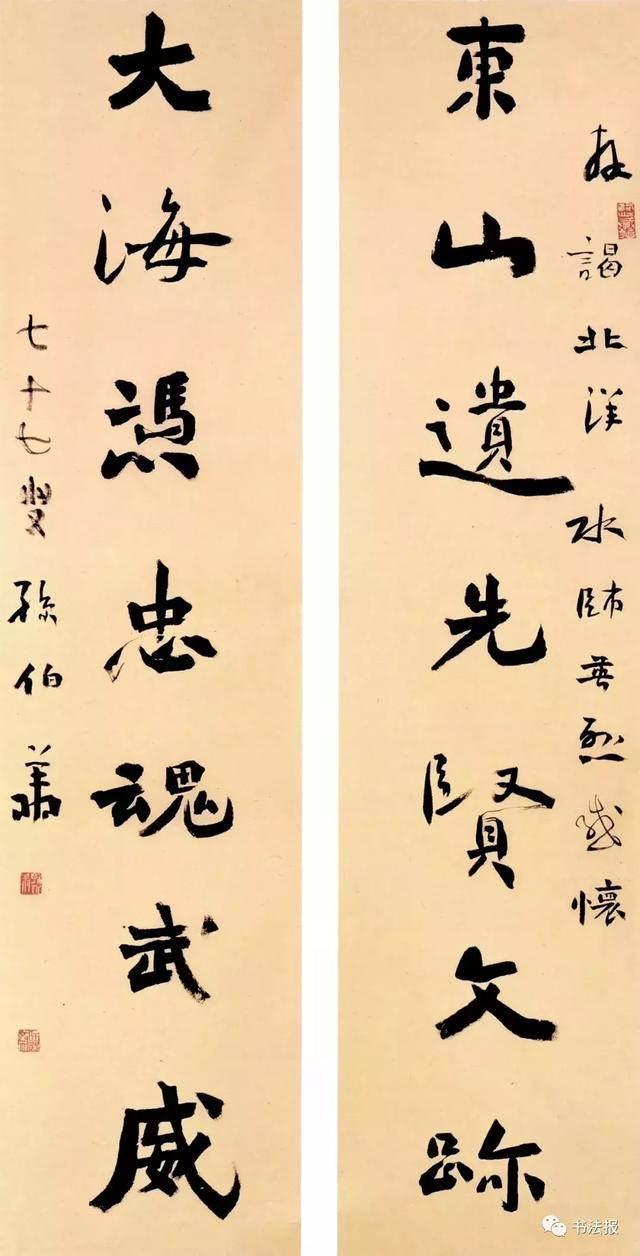 拜謁北洋水師英烈感懷
東山遺先賢文跡
大海馮忠魂武威
七十七叟孫伯翔
书法报